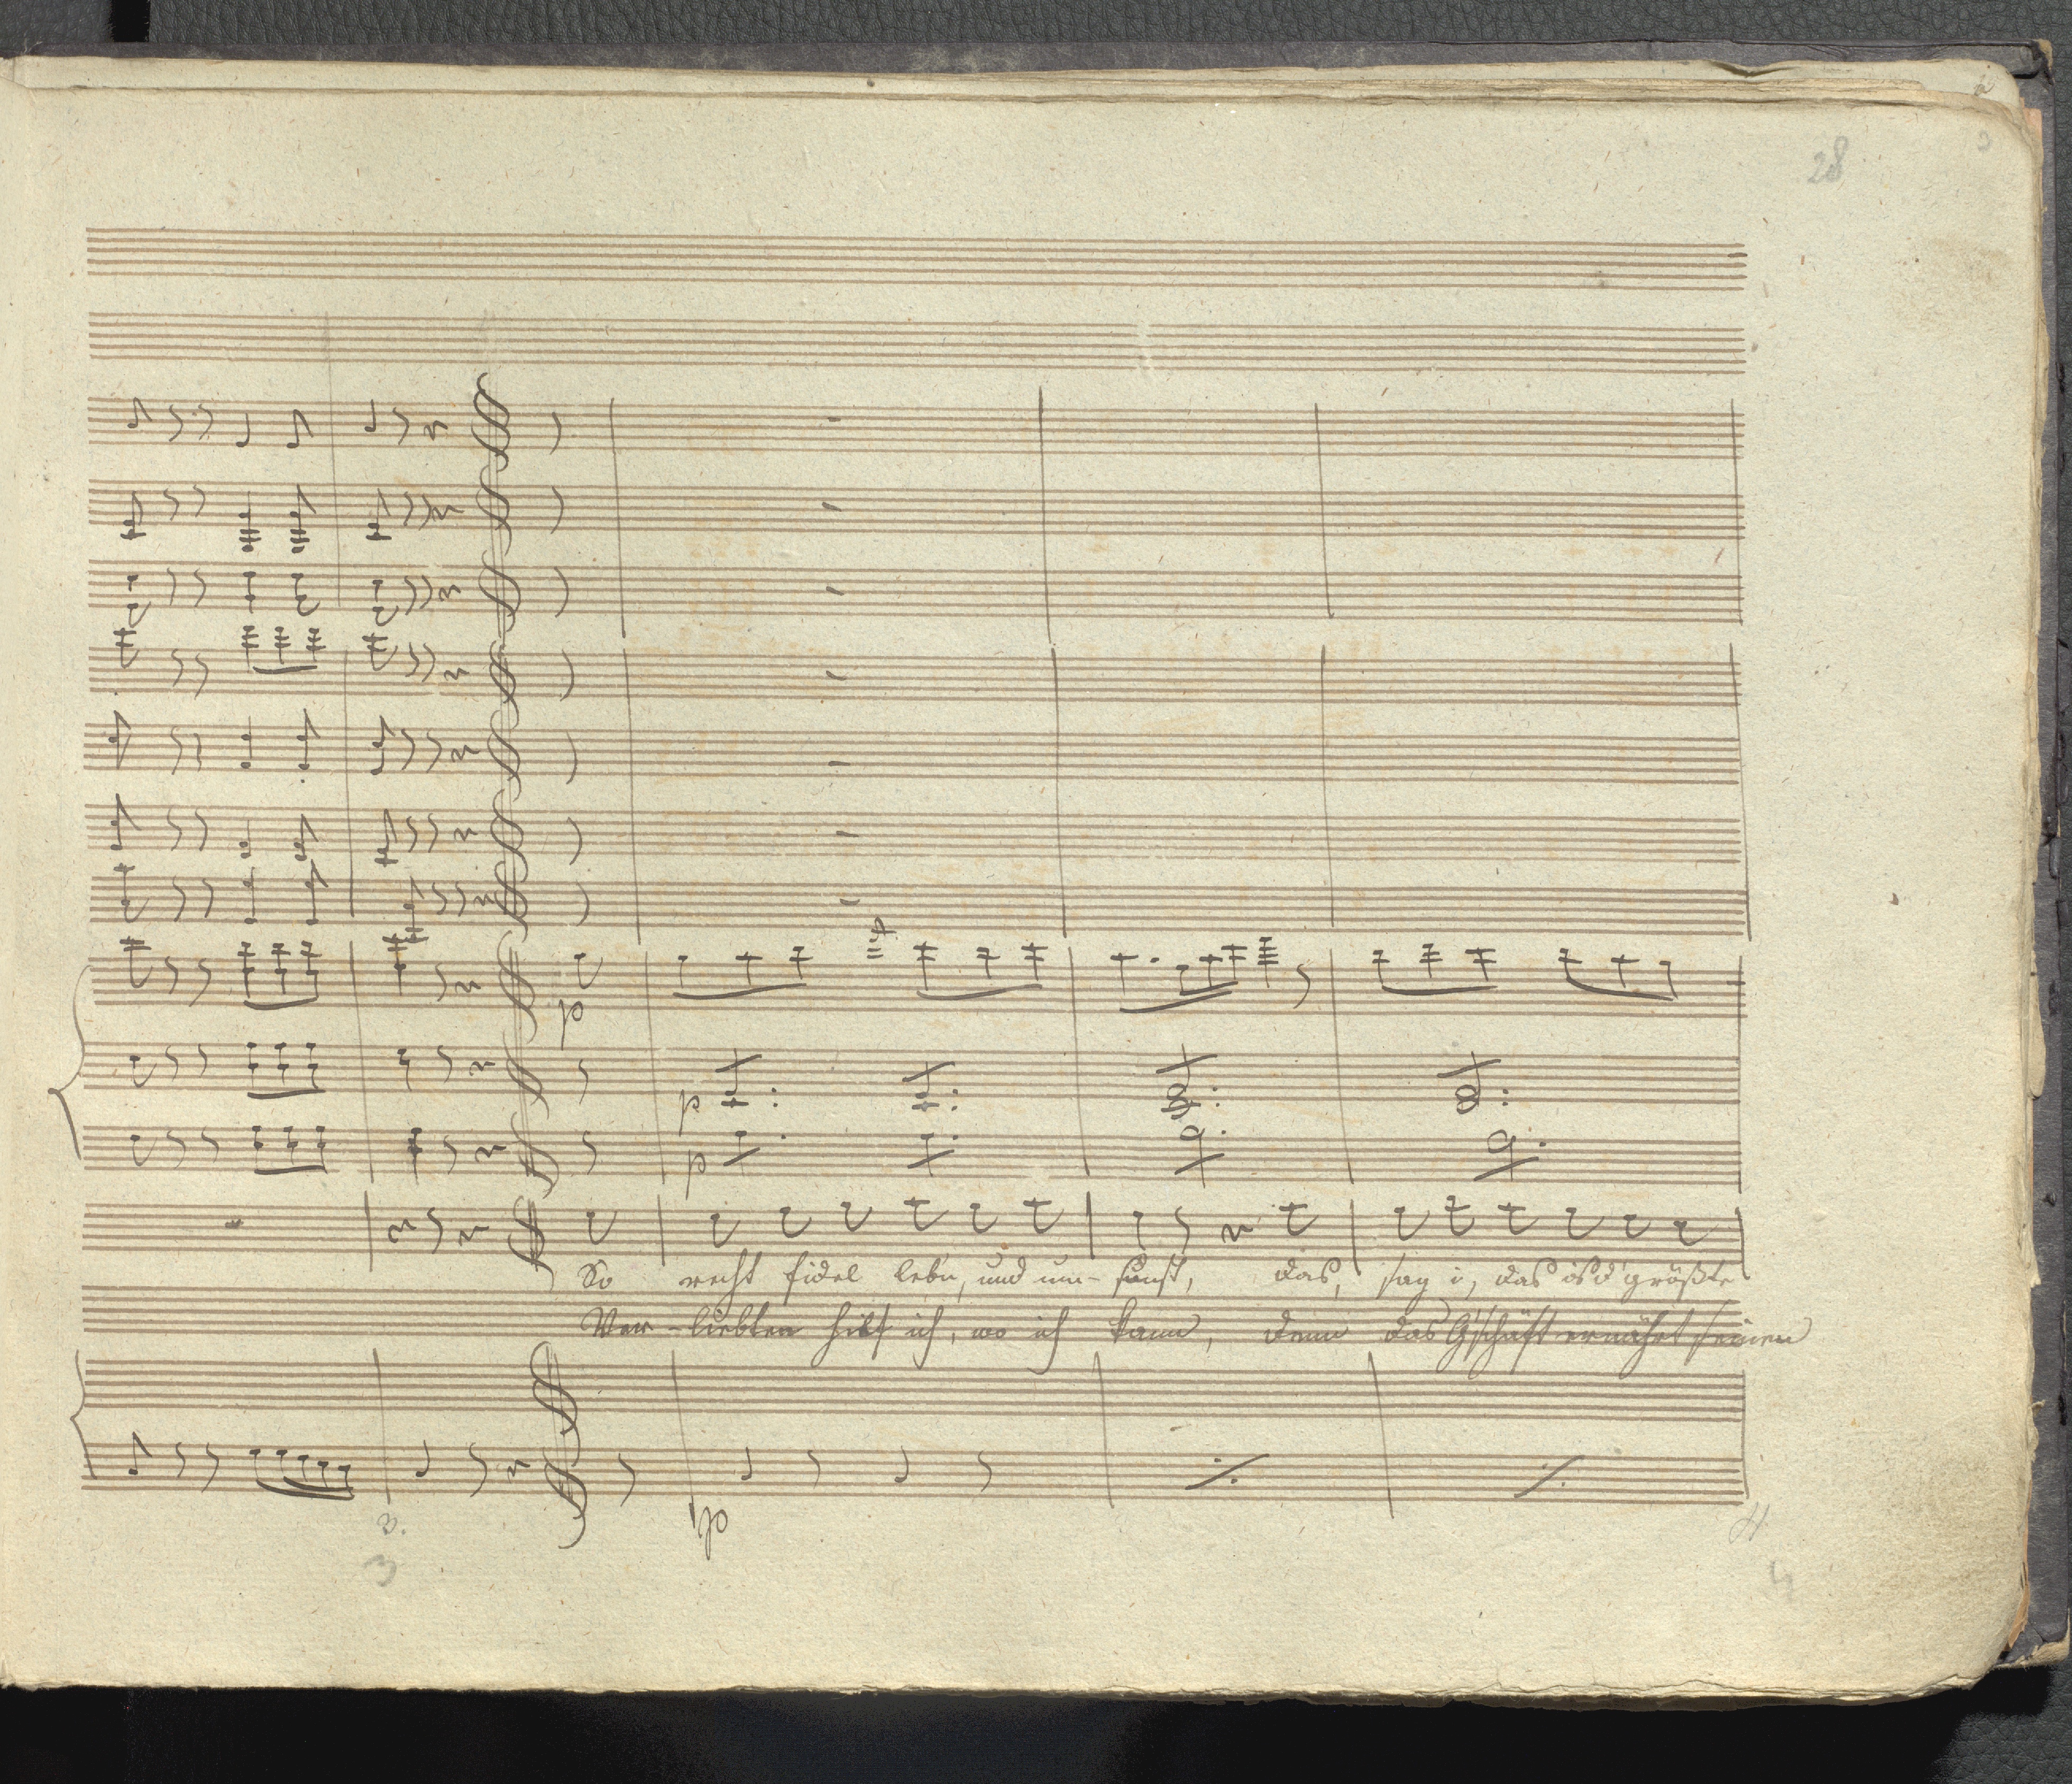 28
p
p
p
So recht fidel lebn, und um-sunst, das, sag i, das is d' größte
Ver-liebten hilf ich, wo ich kann, denn das G'schäft ernährt seinen
3.
p
4
3
4